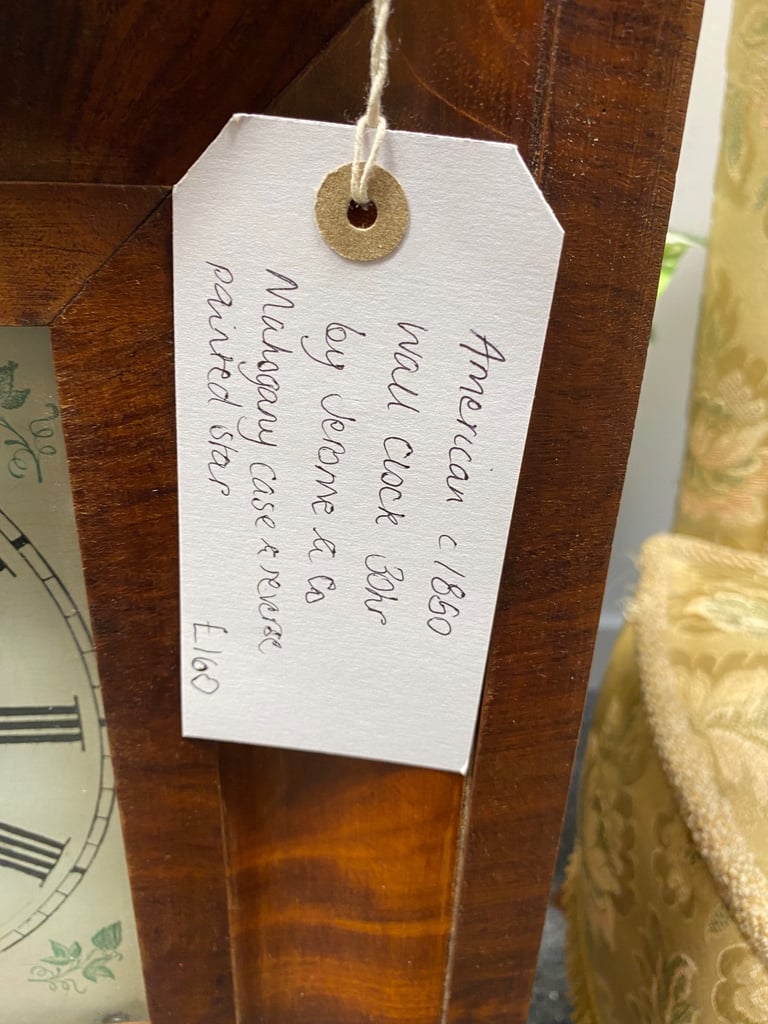 American c 1860
Wall Clock 30hr
by Jerome & Co
Mahogany case & reverse
painted star
£160
III
IIII